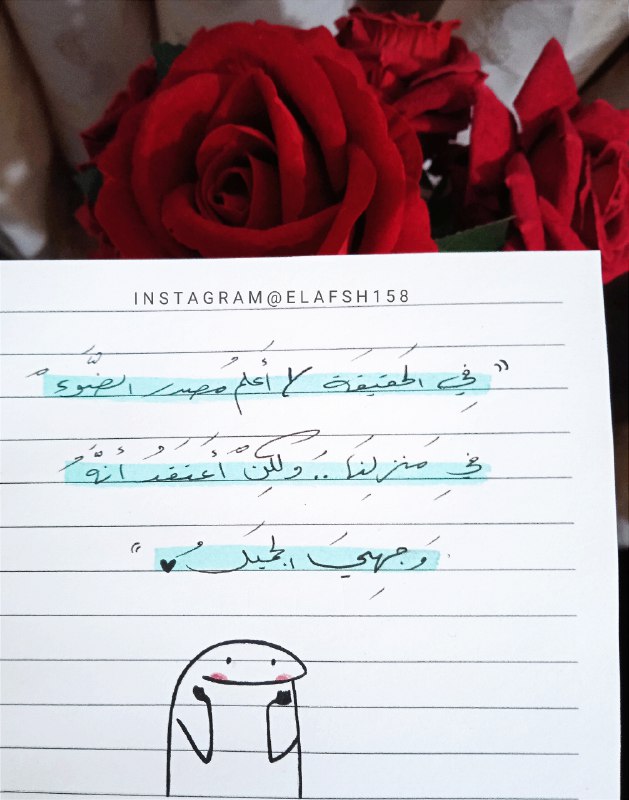 INSTAGRAM@ELAFSH158
"فِي الحَقيقَة لا أَعلمُ مَصدر الضَّوء
فِي مَنزلِنَا .. ولَكِنْ أَعتَقدُ أنَّهُ
وَجهِيَ الجَميلُ ♥"